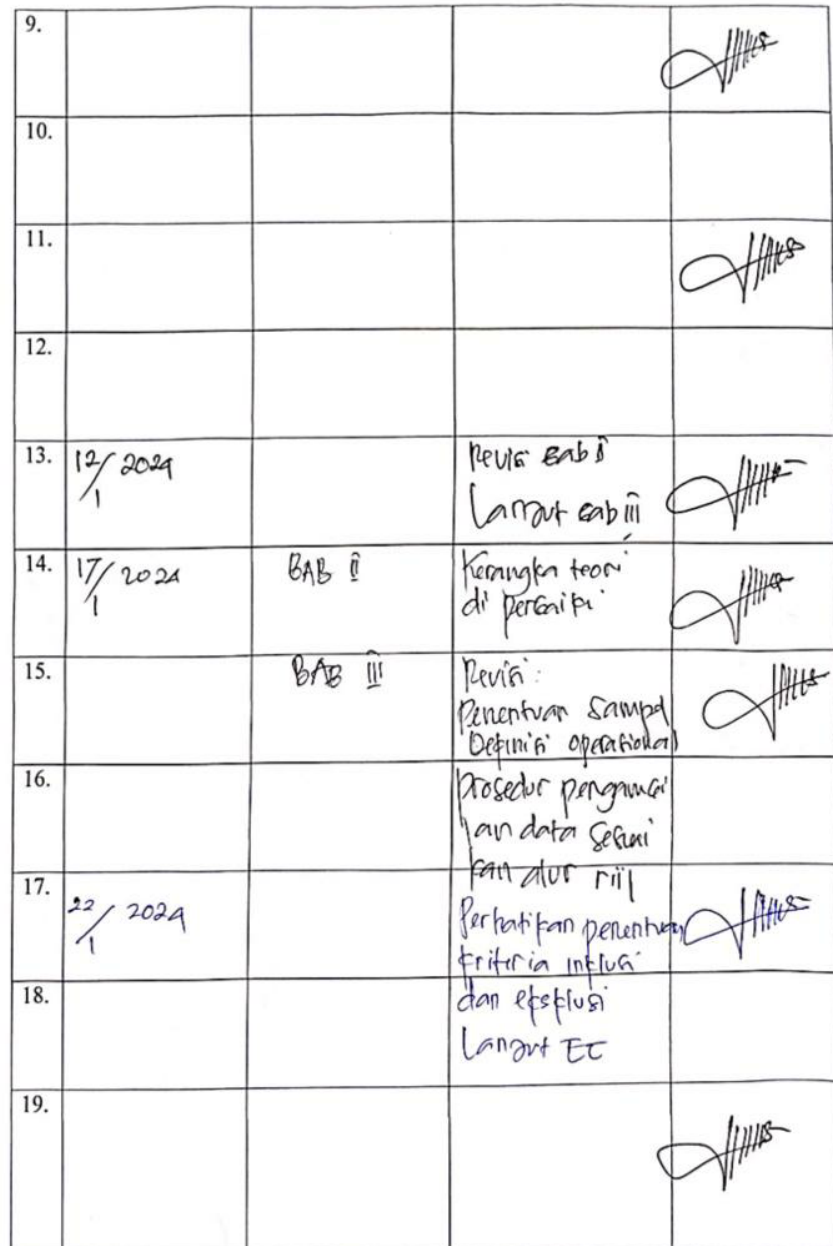 9.
10.
11.
12.
13. 12/1 2024 Revisi Bab II
Lanjut Bab III
14. 17/1 2024 BAB II Kerangka teori
di perbaiki
15. BAB III Revisi:
Penentuan Sampel
Definisi operasional
16. Prosedur pengambil
an data sesuai
kan alur riil
17. 22/1 2024 Perhatikan penentuan
kriteria inklusi
18. dan eksklusi
Lanjut EC
19.